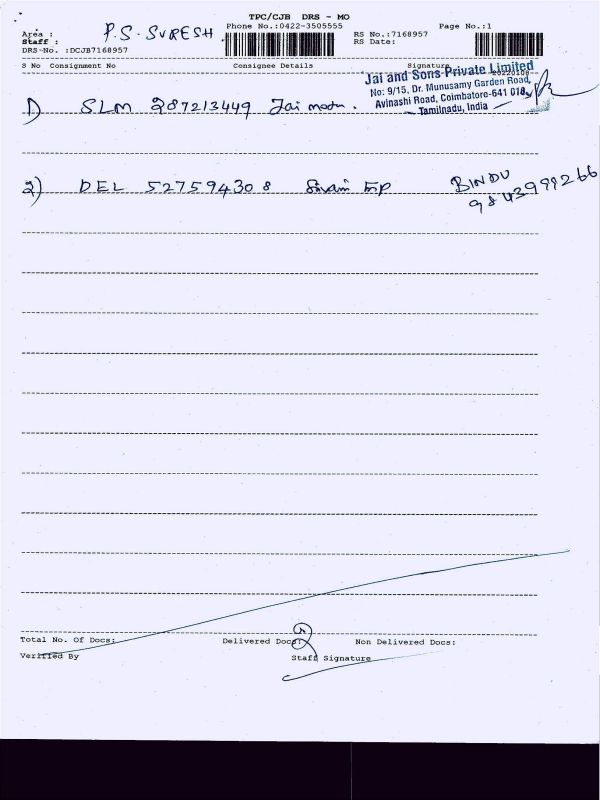 TPC/CJB DRS - MO
Phone No.:0422-3505555
Page No.:1
Area :
P.S. SURESH
Staff :
RS No.:7168957
RS Date:
DRS-No. :DCJB7168957
S No Consignment No Consignee Details Signature
Jai and Sons Private Limited
No: 9/15, Dr. Munusamy Garden Road,
Avinashi Road, Coimbatore-641 018,
Tamilnadu, India
1) SLM 287213449 Jai
2) DEL 527594308
BINDU
9843999266
Total No. Of Docs: Delivered Docs: Non Delivered Docs:
Verified By Staff Signature